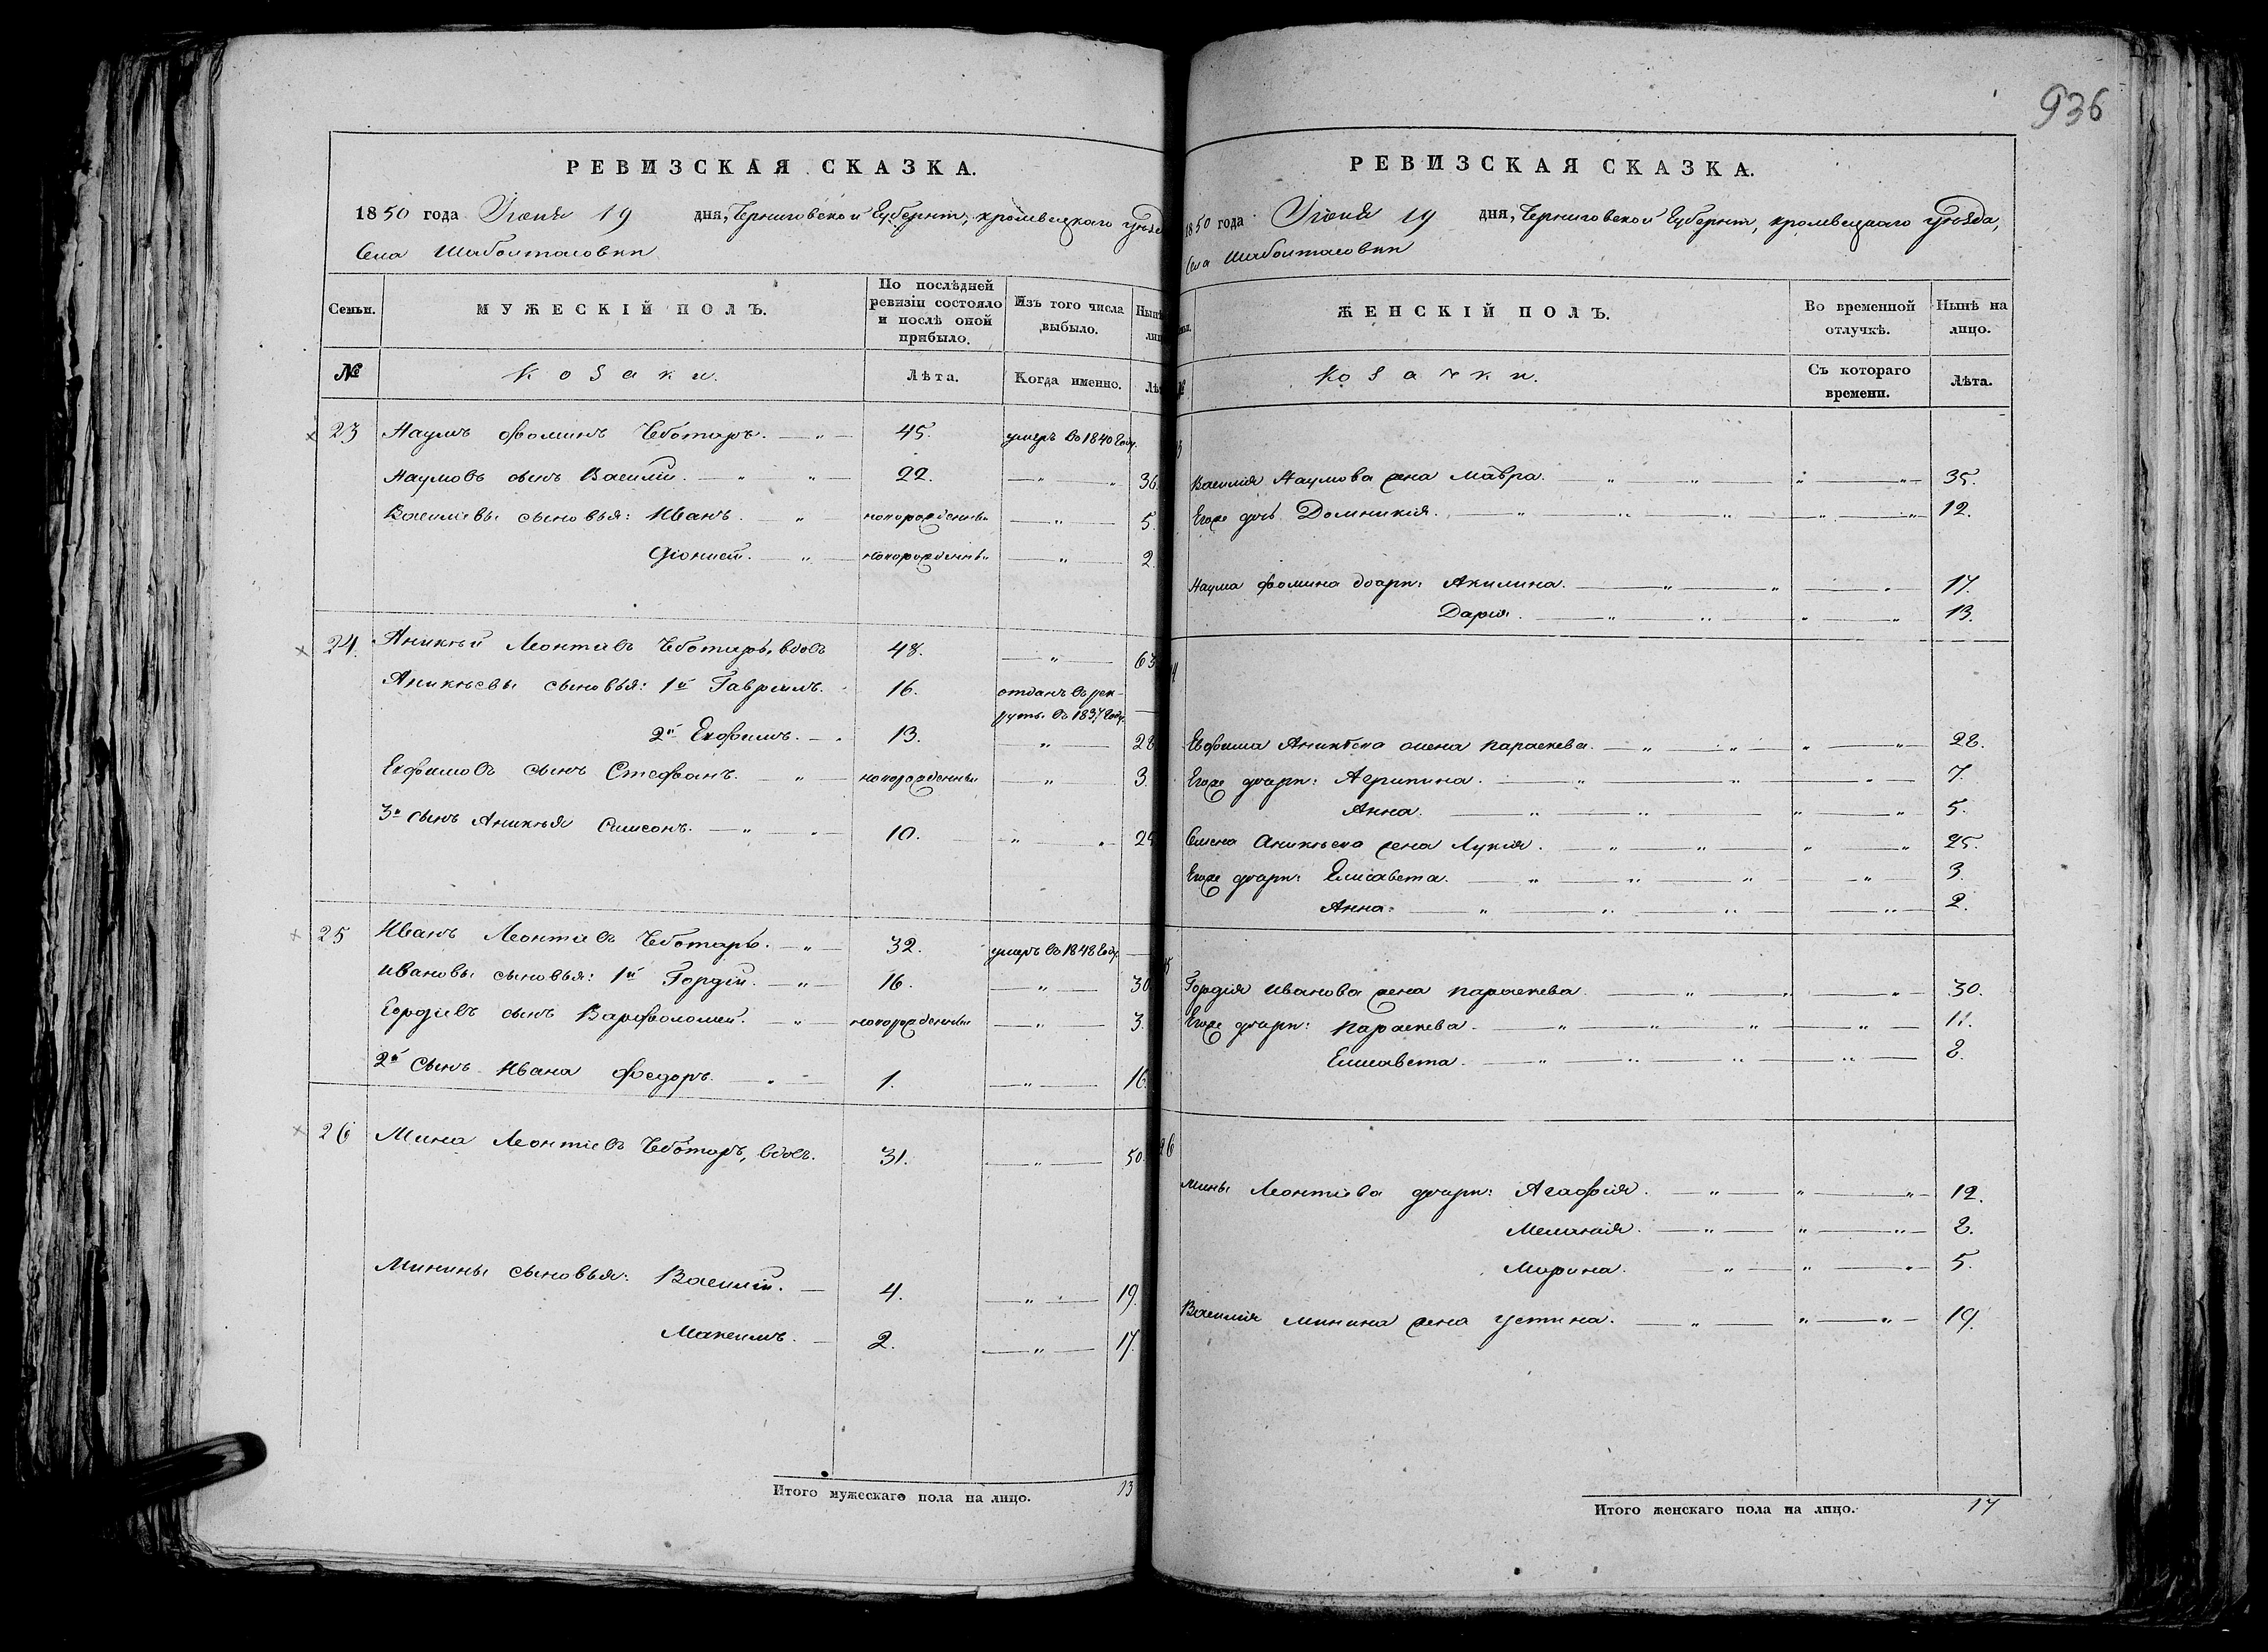 936
РЕВИЗСКАЯ СКАЗКА.
1850 года Іюня 19 дня, Черниговской Губерніи, Кролевецкаго уѣзда
Села Шаболтасовки
Семьи. МУЖЕСКІЙ ПОЛЪ. По послѣдней ревизіи состояло и послѣ оной прибыло. Изъ того числа выбыло.
№ Козаки. Лѣта. Когда именно.
23 Наумъ Фоминъ Чеботарь. 45. умеръ въ 1840 году.
Наумовъ сынъ Василій. 22. 36.
Василіевы сыновья: Иванъ. новорожденный 5.
Діонисій. новорожденный 2.
24. Аникѣй Леонтіевъ Чеботарь, вдовъ 48. 63
Аникѣевы сыновья: 1й Гавріилъ. 16. отданъ въ рек-
руты въ 1837 году.
2й Евфимъ. 13. 28
Евфимовъ сынъ Стефанъ. новорожденный 3.
3й сынъ Аникѣя Симеонъ. 10.
25 Иванъ Леонтіевъ Чеботарь. 32. умеръ въ 1848 году
Ивановы сыновья: 1й Гордій. 16. 30
Гордіевъ сынъ Варфоломей. новорожденный 3.
2й сынъ Ивана Федоръ. 1. 16.
26 Мина Леонтіевъ Чеботарь, вдовъ. 31. 50.
Минины сыновья: Василій. 4. 19.
Максимъ. 2. 17.
Итого мужескаго пола на лицо. 13
РЕВИЗСКАЯ СКАЗКА.
1850 года Іюня 19 дня, Черниговской Губерніи, Кролевецкаго уѣзда,
Села Шаболтасовки
ЖЕНСКІЙ ПОЛЪ. Во временной отлучкѣ. Нынѣ на лицо.
№ Козачки. Съ котораго времени. Лѣта.
Василія Наумова жена Мавра. 35.
Егоже дочь Домникія. 12.
Наума Фомина дочери: Акилина. 17.
Дарія. 13.
Евфима Аникѣева жена Параскева. 28.
Егоже дочери: Агрипина. 7.
Анна. 5.
Семена Аникѣева жена Лукія. 25.
Егоже дочери: Елисавета. 3.
Анна. 2.
Гордія Иванова жена Параскева 30.
Егоже дочери: Параскева. 11.
Елисавета. 8.
26
Мины Леонтіева дочери: Агафія. 12.
Меланія. 8.
Марина. 5.
Василія Минина жена Устина. 19.
Итого женскаго пола на лицо. 17